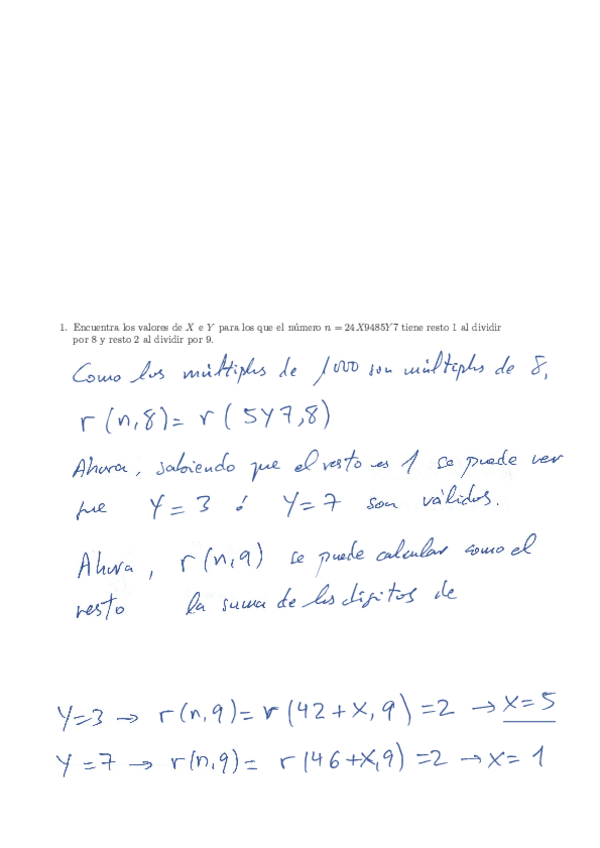 1. Encuentra los valores de X e Y para los que el número n = 24X9485Y7 tiene resto 1 al dividir
por 8 y resto 2 al dividir por 9.
Como los múltiplos de 1000 son múltiplos de 8,
r(n,8) = r(5Y7,8)
Ahora, sabiendo que el resto es 1 se puede ver
que Y=3 ó Y=7 son válidos.
Ahora, r(n,9) se puede calcular como el
resto la suma de los dígitos de
Y=3 → r(n,9) = r(42+X,9) =2 → X=5
Y=7 → r(n,9) = r(46+X,9) =2 → X=1